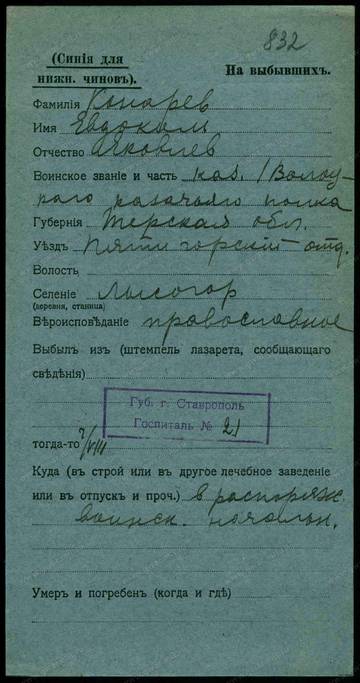 832
(Синія для
нижн. чиновъ).
На выбывшихъ.
Фамилія Конарев
Имя Евдоким
Отчество Яковлев
Воинское званіе и часть каз. 1 Волгу-
рскаго казачьяго полка
Губернія Терская обл.
Уѣздъ Пятигорскій отд.
Волость
Селеніе Лысогор
(деревня, станица)
Вѣроисповѣданіе православное
Выбылъ изъ (штемпель лазарета, сообщающаго
свѣдѣнія)
Губ. г. Ставрополь
Госпиталь № 21
тогда-то 7/VIII
Куда (въ строй или въ другое лечебное заведеніе
или въ отпускъ и проч.) в распоряж.
воинск. началън.
Умеръ и погребенъ (когда и гдѣ)